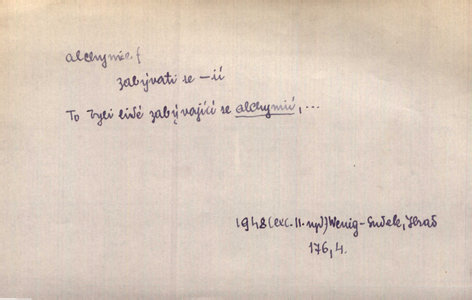 alchymie f
zabývati se –ií
To byli lidé zabývající se alchymií, ...
1948 (exc. II. vyd) Wenig-Sudek, Hrad
176, 4.